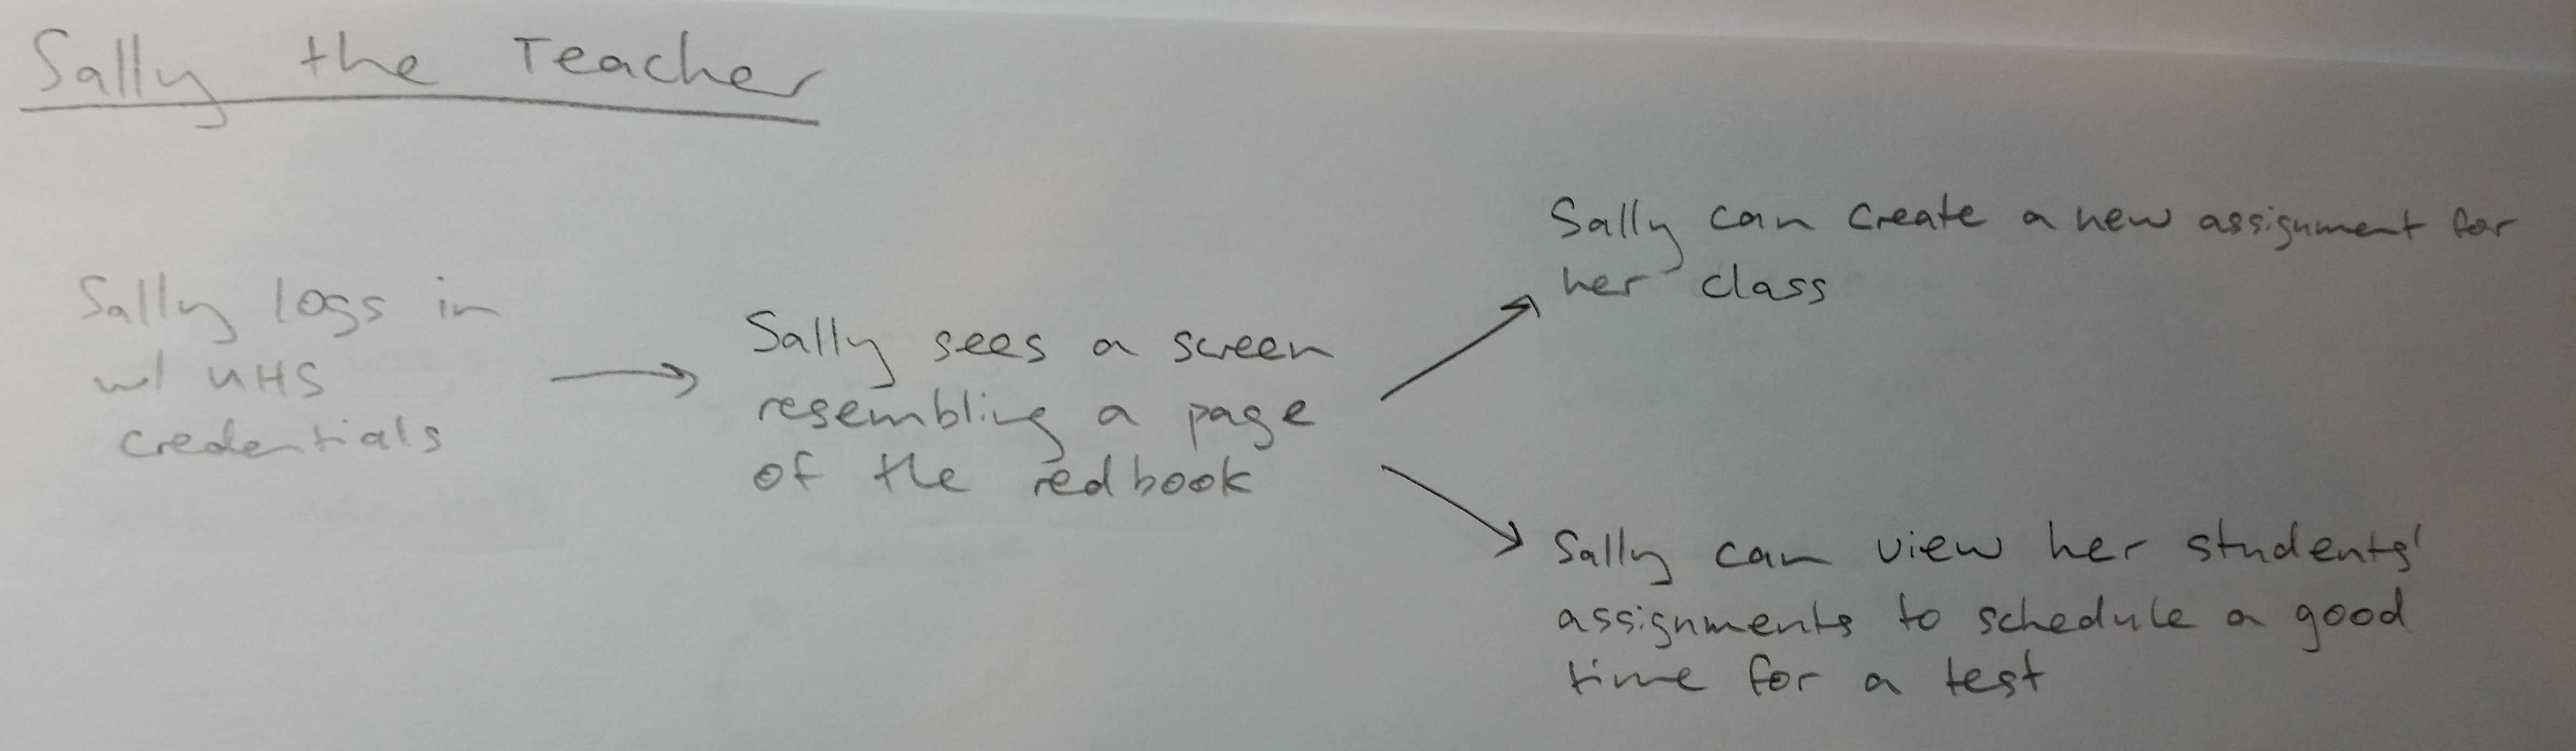 Sally the Teacher
Sally logs in
w/ UHS
credentials
Sally sees a screen
resembling a page
of the redbook
Sally can create a new assignment for
her class
Sally can view her students'
assignments to schedule a good
time for a test